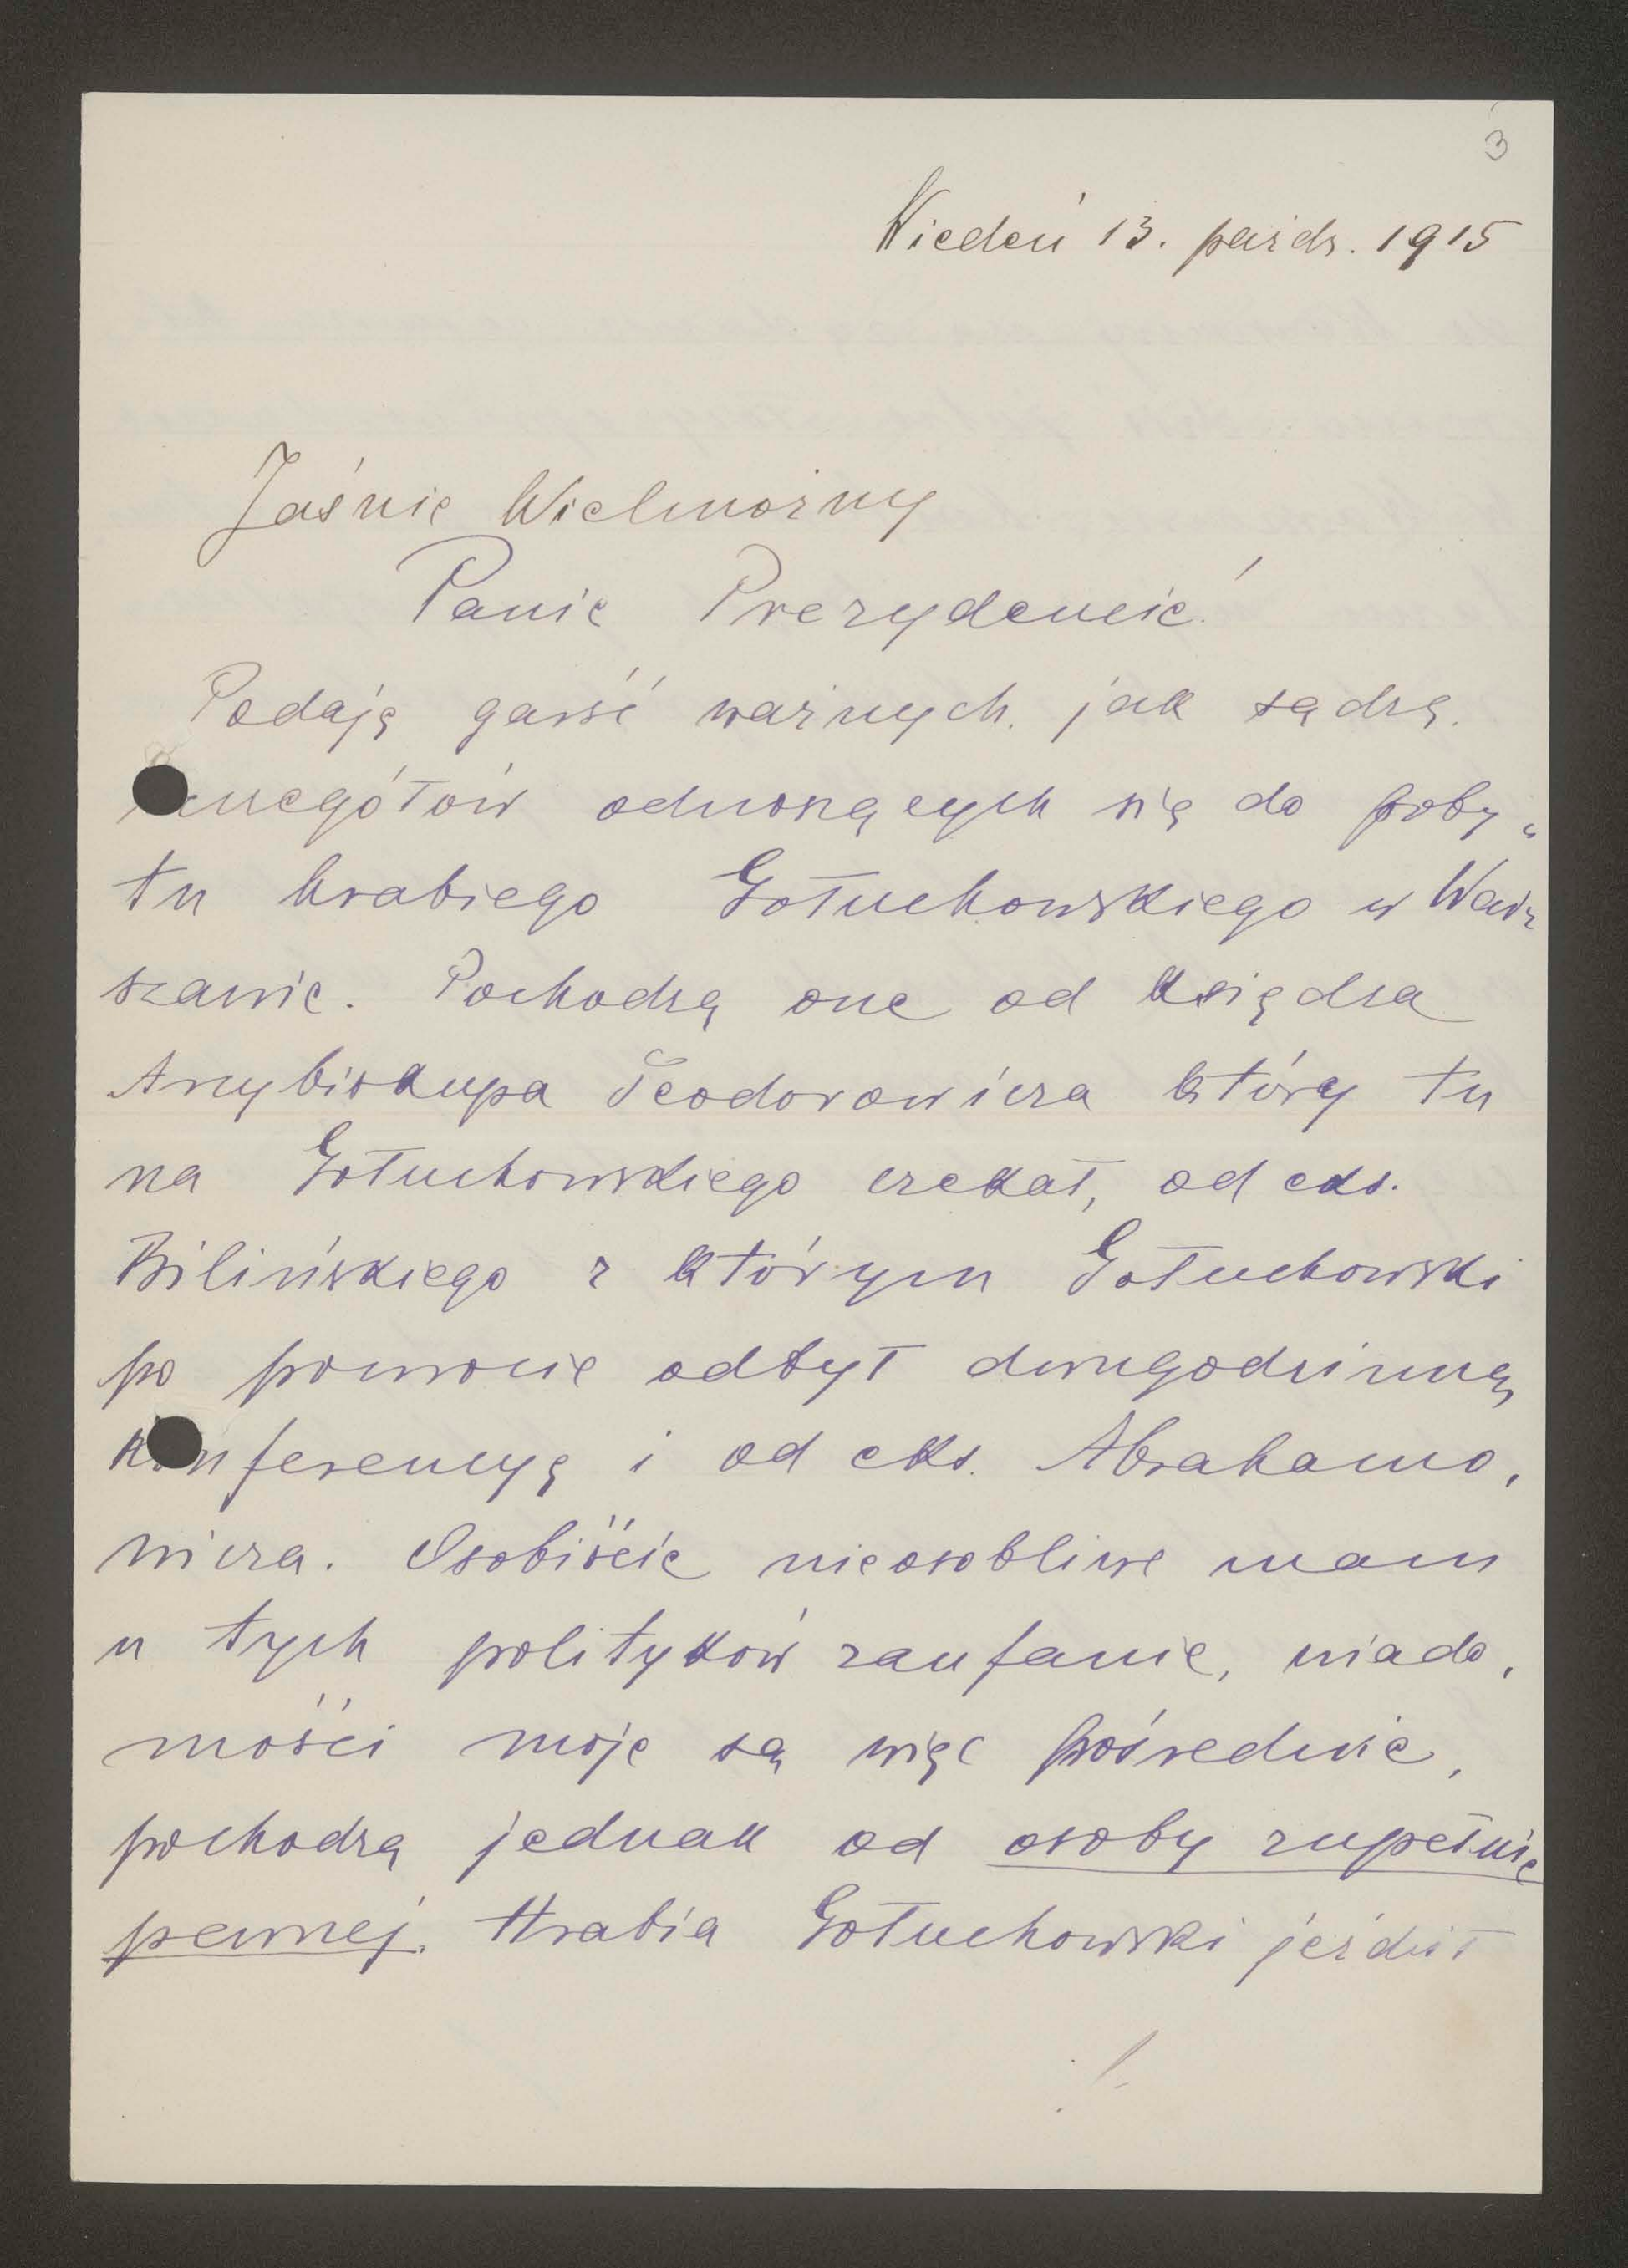 3
Wiedeń 13. paźdz. 1915
Jaśnie Wielmożny
Panie Prezydencie!
Podaję garść ważnych jak sądzę.
szczegółów odnoszących się do poby„
tu hrabiego Gołuchowskiego w War„
szawie. Pochodzą one od księdza
Arcybiskupa Teodorowicza który tu
na Gołuchowskiego czekał, od eks.
Bilińskiego z którym Gołuchowski
po powrocie odbył dwugodzinną
konferencyę i od eks. Abrahamo,
wicza. Osobiście nieosobliwe mam
u tych polityków zaufanie, wiado,
mości moje są więc pośrednie,
pochodzą jednak od osoby zupełnie
pewnej. Hrabia Gołuchowski jeździł
./.